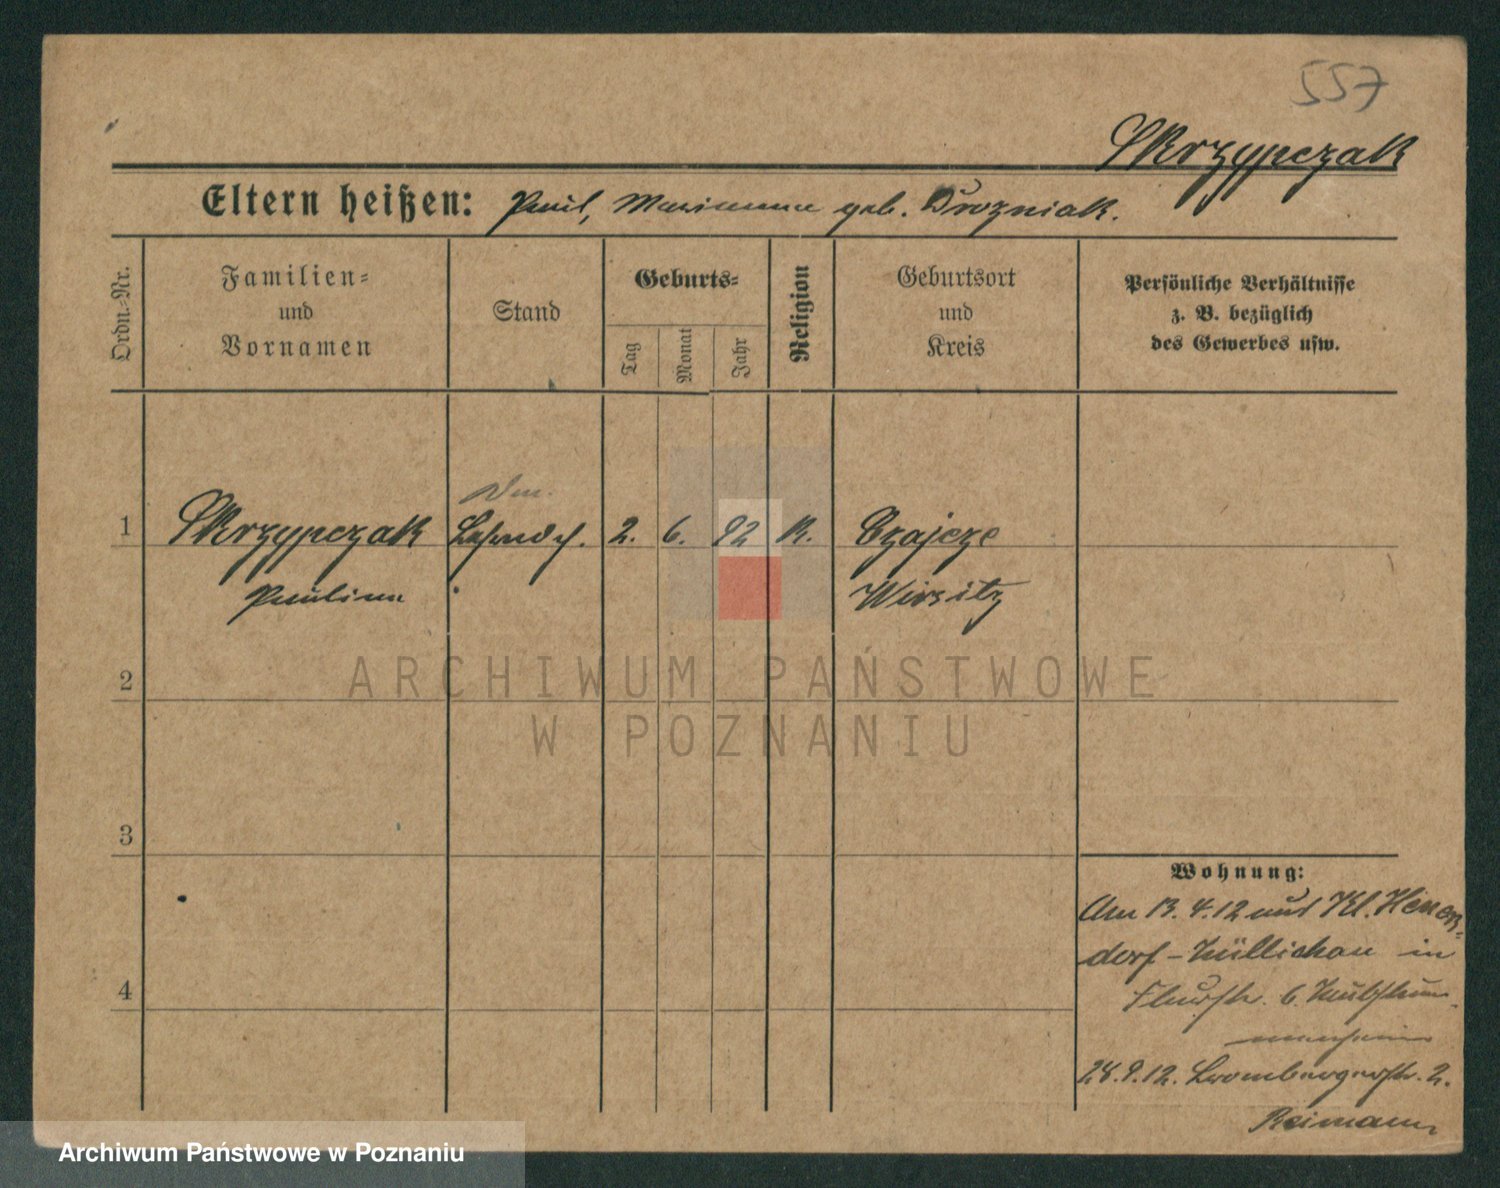 557
Skrzypczak
Eltern heißen: Paul, Marianna geb. Drozniak.
Ordn.-Nr.
Familien-
und
Vornamen
Stand
Geburts-
Tag
Monat
Jahr
Religion
Geburtsort
und
Kreis
Persönliche Verhältnisse
z. B. bezüglich
des Gewerbes usw.
1 Skrzypczak 2. 6. 92 K. Czajcze
Paulina Wirsitz
2
3
4
Wohnung:
Am 13. 4. 12 aus Kl.
dorf - Züllichau in
6.
28.9.12. Brombergerstr. 2.
Reimann
ARCHIWUM PAŃSTWOWE
W POZNANIU
Archiwum Państwowe w Poznaniu